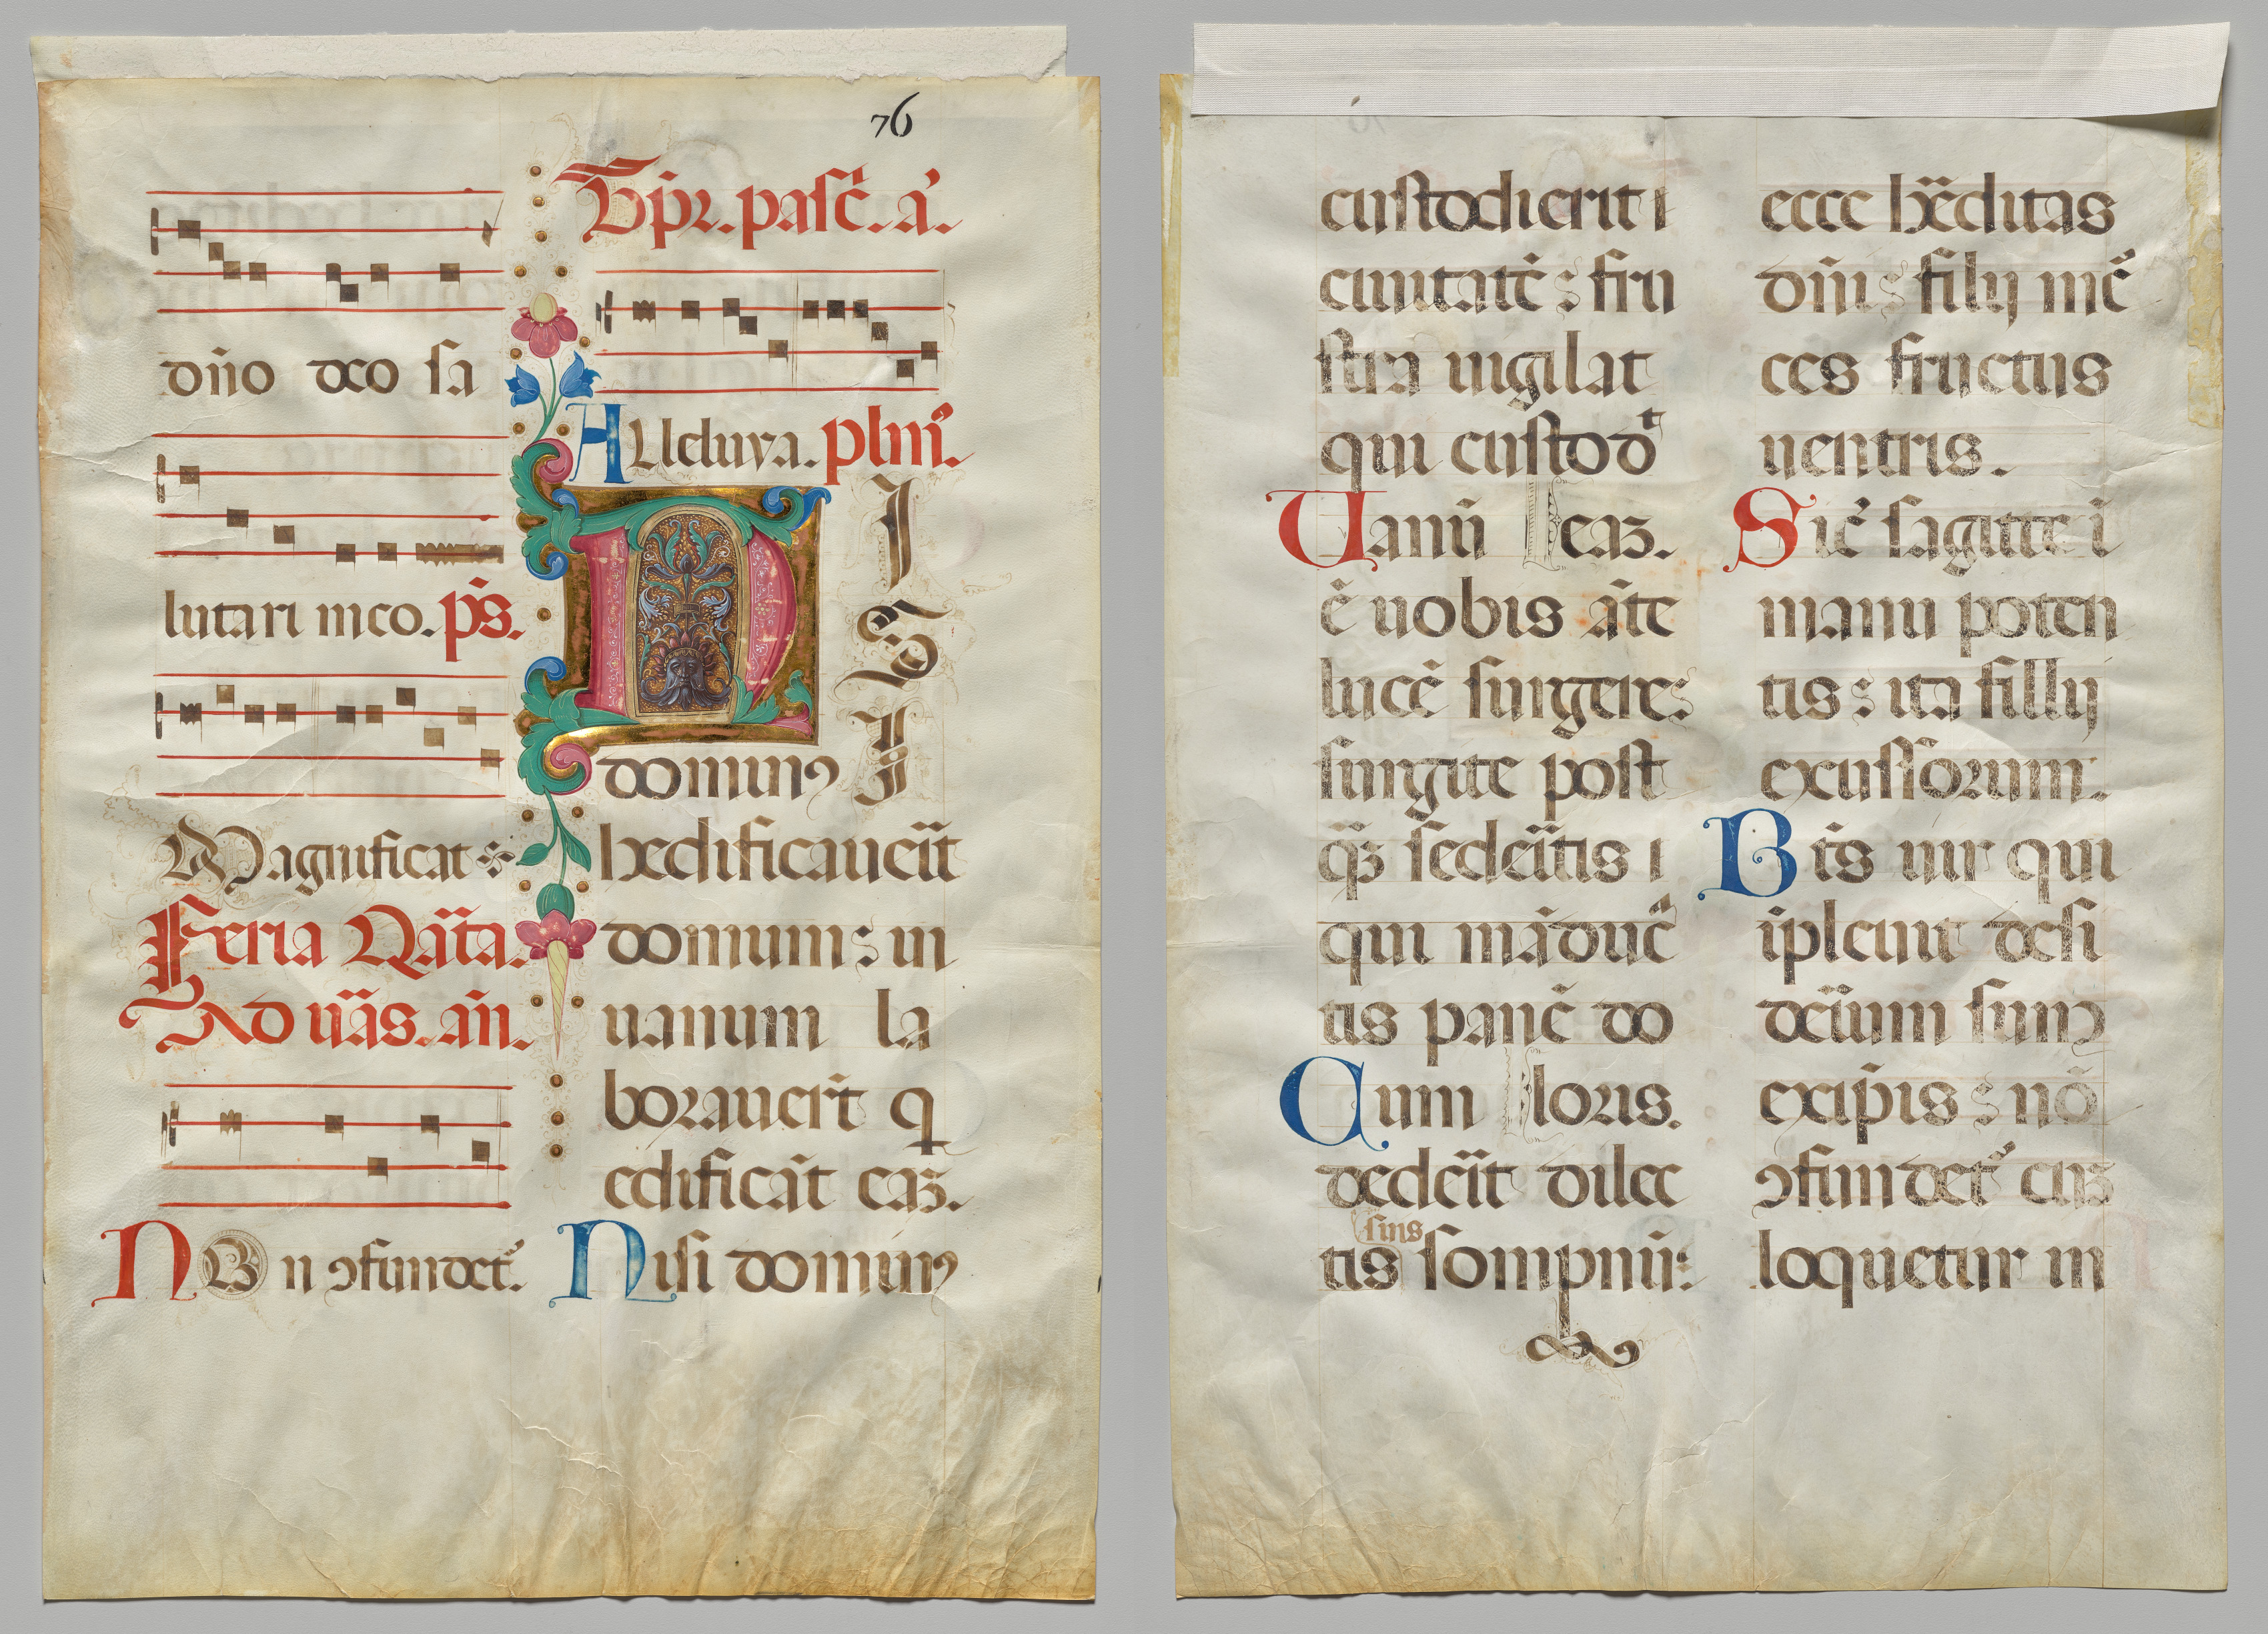 76
dño deo sa
lutari meo. p̄s.
Magnificat
Feria Qäta.
Ad ūäs. añ.
NOn ꝯfundet᷑.
Tp̄r. pasc̄. a.
Alleluya. plm̄.
NISI
dominꝰ
hedificaueıt̄
domum: in
uanum la
borauer̄t q
edificāt eaꝫ.
Nisi dominꝰ
custodierit i
ciuitatē: fru
stra uigilat
qui custod
Uanū eaꝫ.
ē uobis āte
lucē surgere:
surgite post
qꝫ sedeıtis i
qui māducā
tis panē do
Cum loris.
dedeıt dilec
tis sins sompnū:
ecce heditas
dñi: filij mē
ces fructus
uentris.
Sic̄ sagitte i
manu poten
tis: ita fillij
excussorum.
Bt̄s uir qui
ipleuit desi
deıum suuꝫ
exip̄is: nō
ꝯfundet᷑ cuꝫ
loquetur in